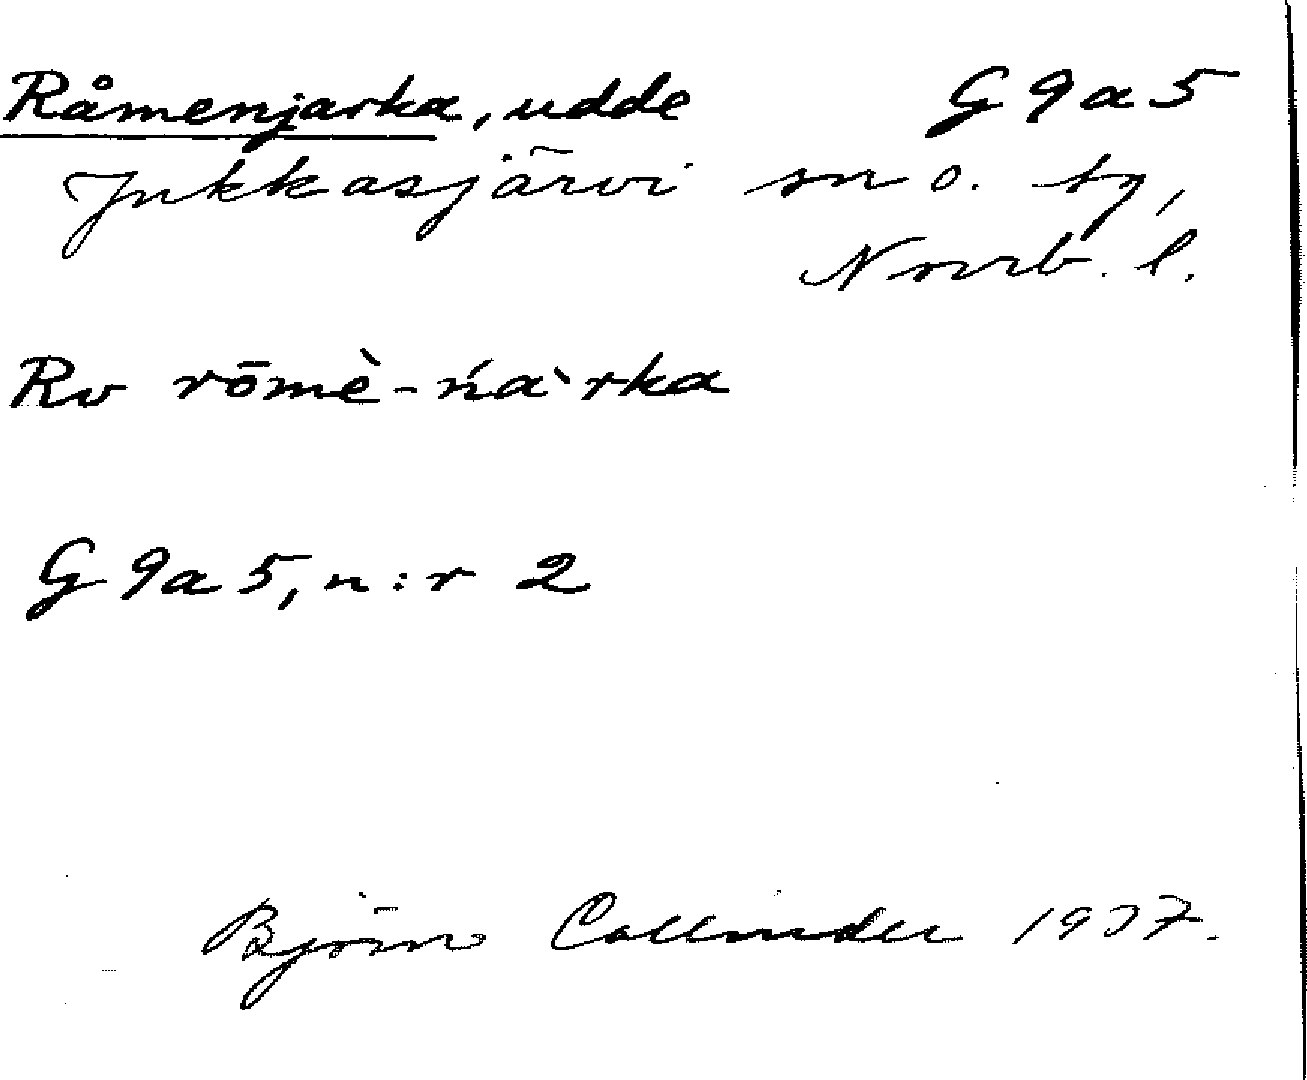 Råmenjarka, udde G 9 a 5
Jukkasjärvi sn o. tg,
Norrb. l.
Rv rōmè-ńàrka
G 9a 5, n:r 2
Björn Collinder 1937.